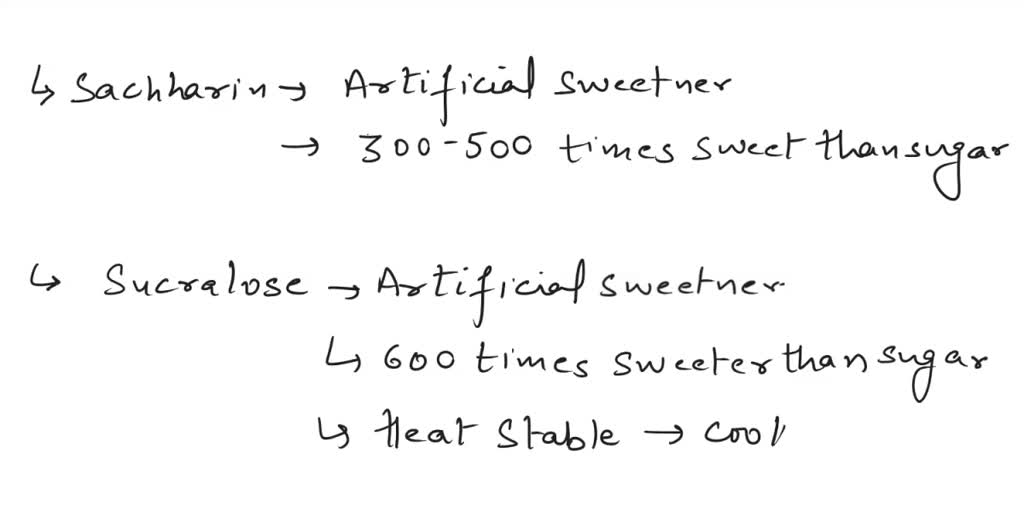 ↳ Sachharin → Artificial sweetner
→ 300-500 times sweet than sugar
↳ Sucralose → Artificial sweetner
↳ 600 times sweeter than sugar
↳ Heat Stable →